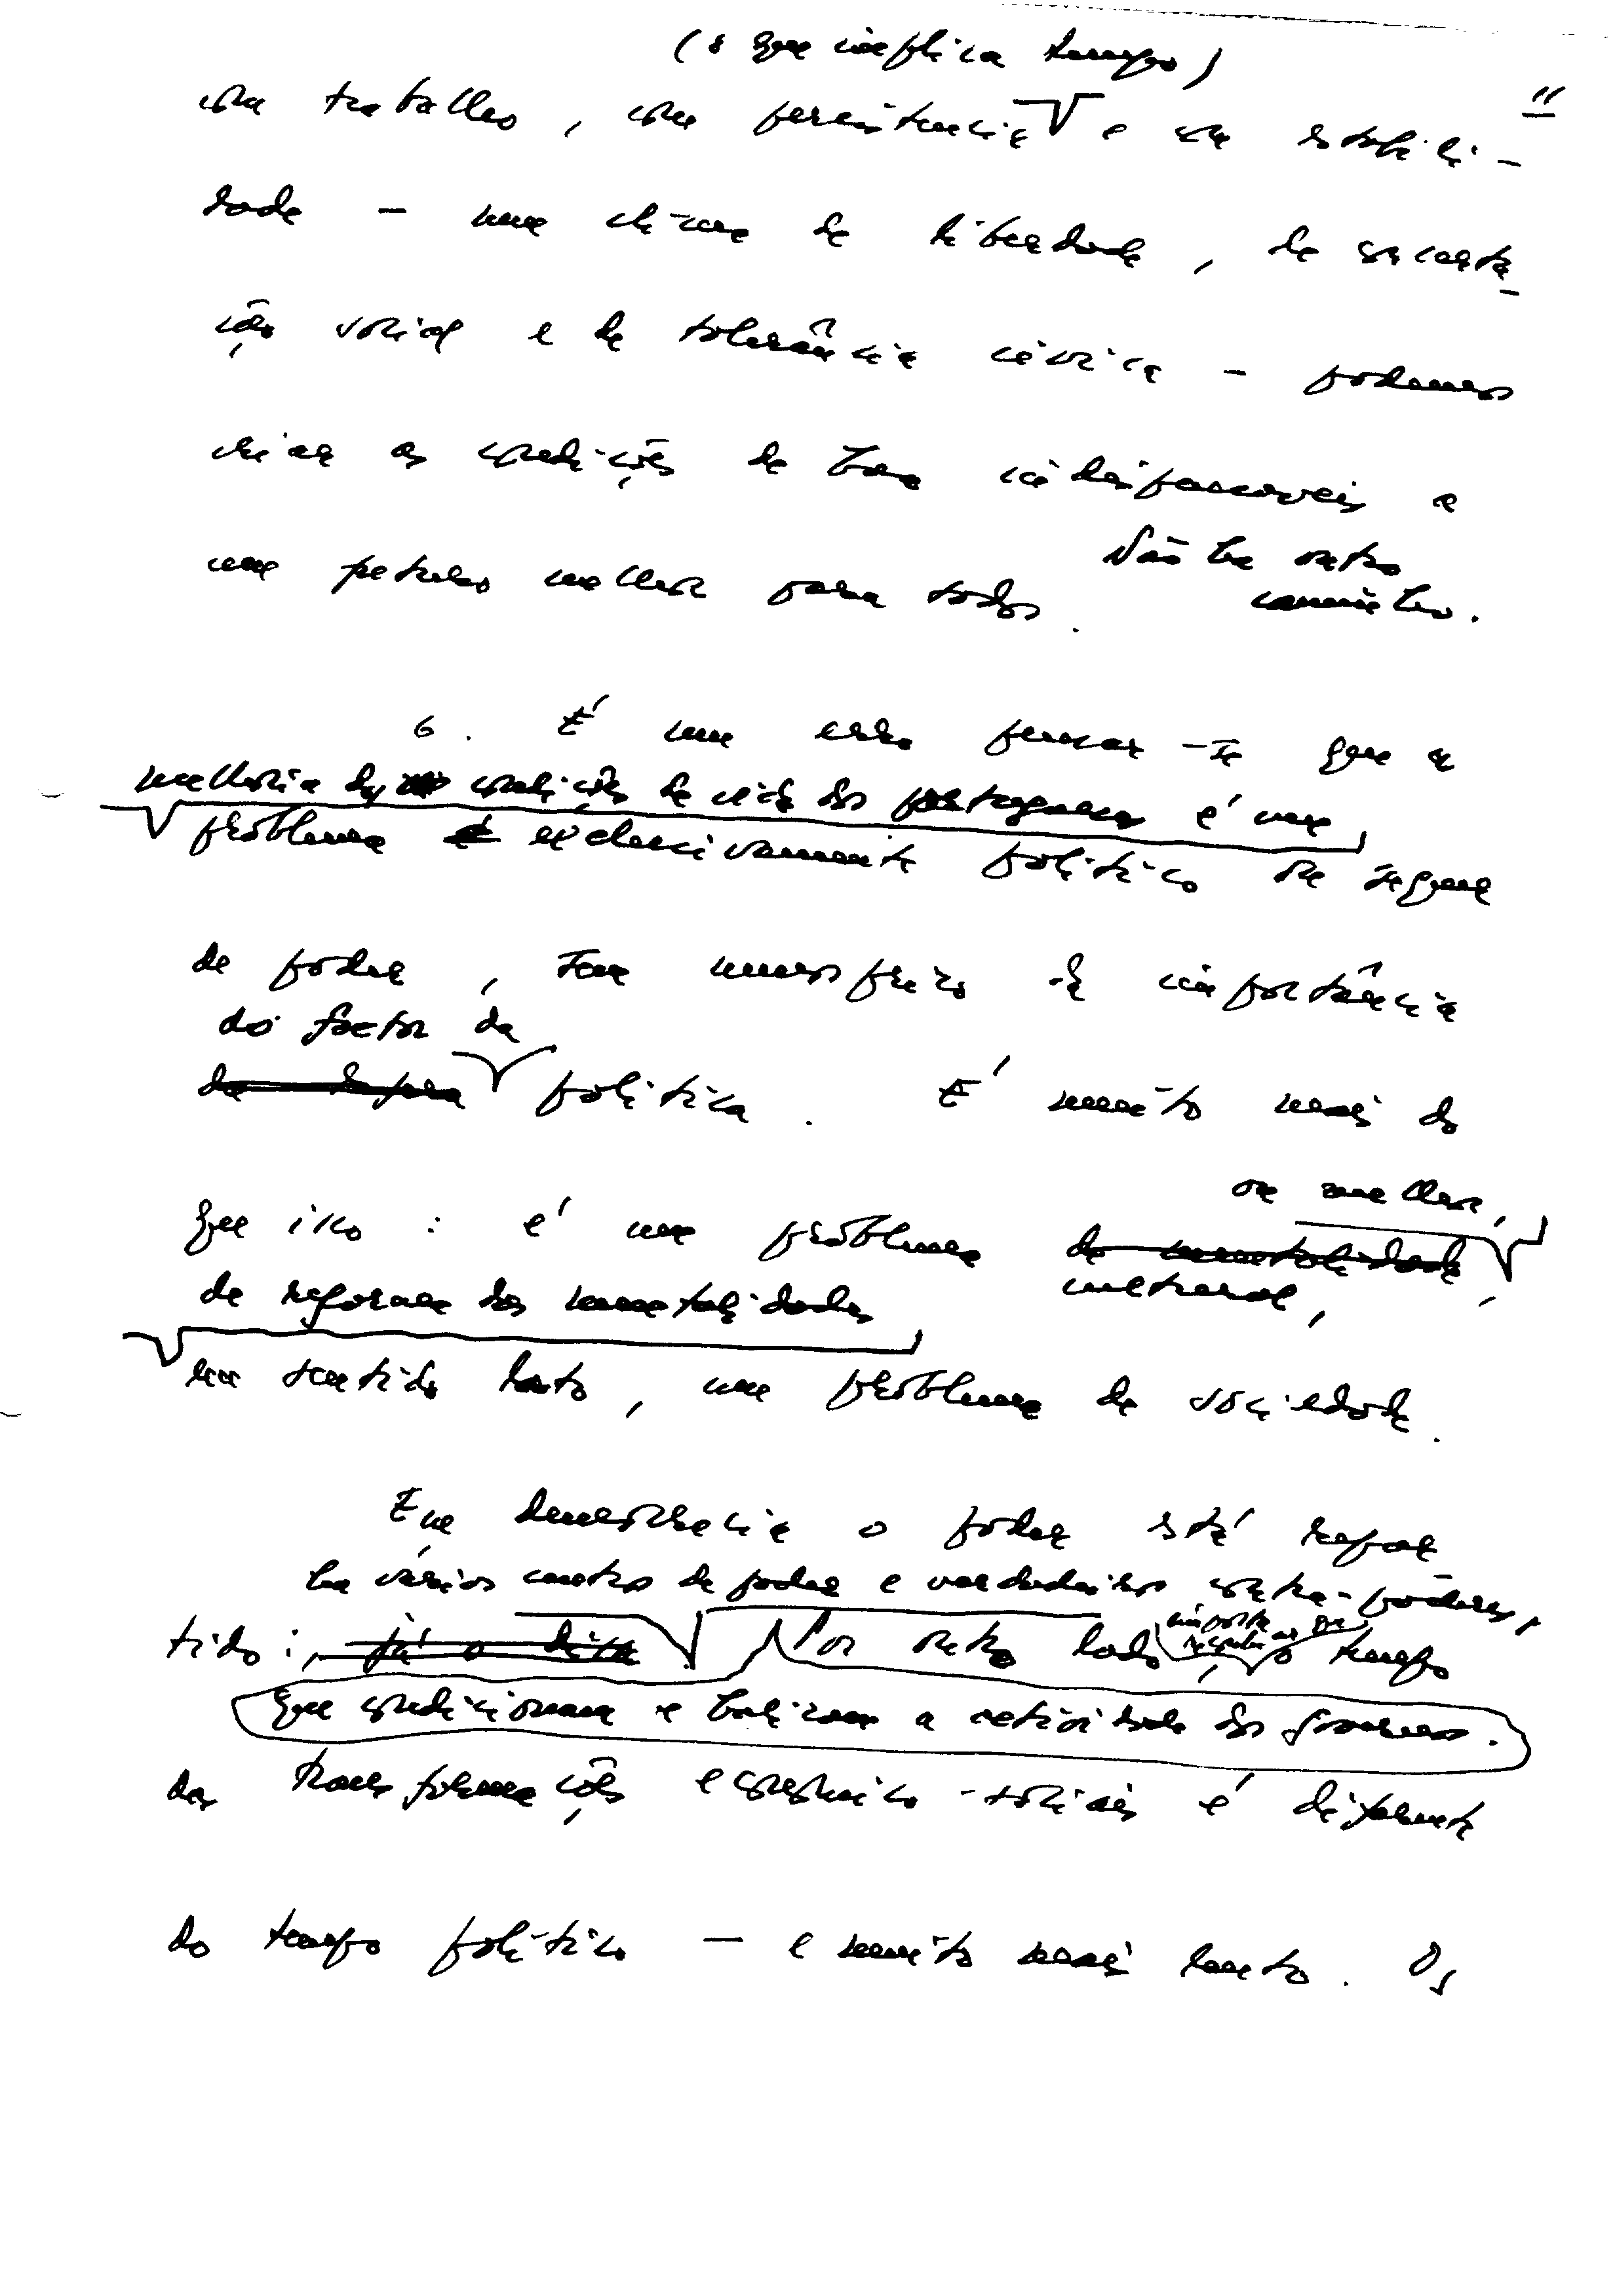 (o que implica tempo)
11
com trabalho, com persistência e com estabili-
dade – num clima de liberdade, de concerta-
ção social e de tolerância cívica – podemos
criar as condições de base indispensáveis a
um futuro melhor para todos. Não há outro
caminho.
6. É um erro pensar-se que a
melhoria das condições de vida dos portugueses é um
problema exclusivamente político ou sequer
de poder, sem menosprezo da importância
do factor da
da política. É muito mais do
ou melhor,
que isso: é um problema de mentalidade,
cultural,
de reforma das mentalidades
em sentido lato, um problema de sociedade.
Em democracia o poder está repar-
há vários centros de poder e verdadeiros contra-poderes,
tido: já o disse Por outro lado, importa sublinhar que o tempo
que condicionam e balizam a actividade dos governos.
das transformações económico-sociais é diferente
do tempo político – e muito mais lento. Os